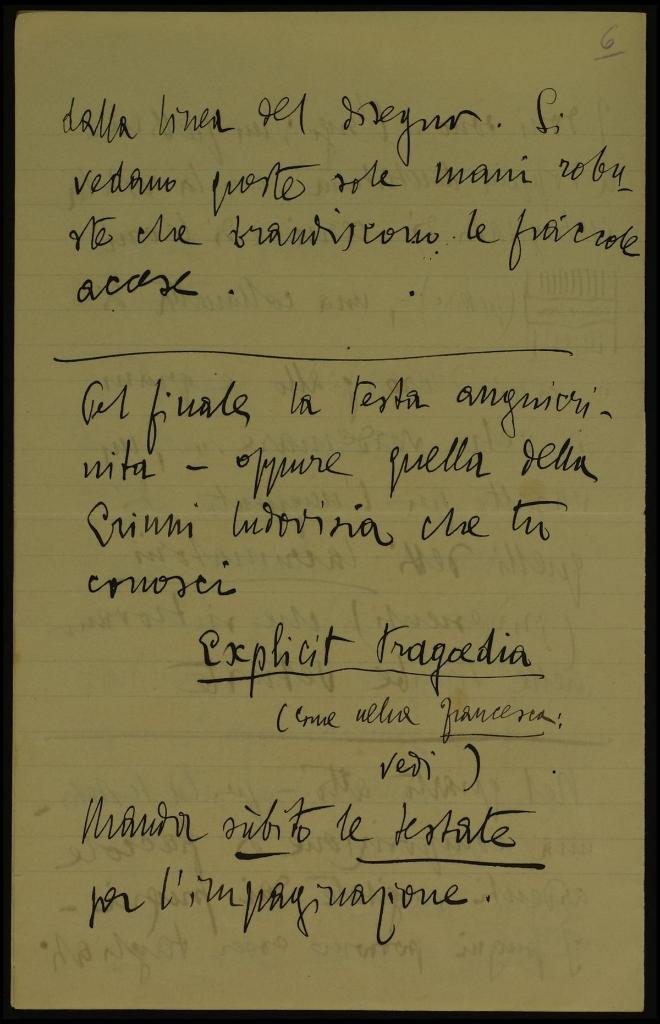 6
dalla linea del disegno. Si
vedano queste sole mani robu-
ste che brandiscono le fiaccole
accese.
Pel finale, la testa anguicri-
nita – oppure quella della
Erinni ludovisia che tu
conosci
Explicit tragœdia
(come nella Francesca:
vedi)
Manda sùbito le testate
per l'impaginazione.